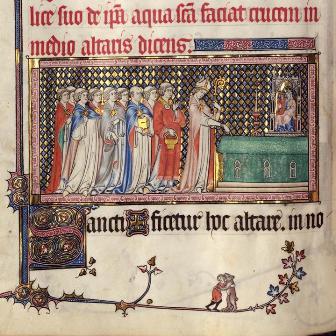 lice suo de ip̃a aqua sc̃a faciat crucem in
medio altaris dicens.
Sanctificetur hoc altare. in no